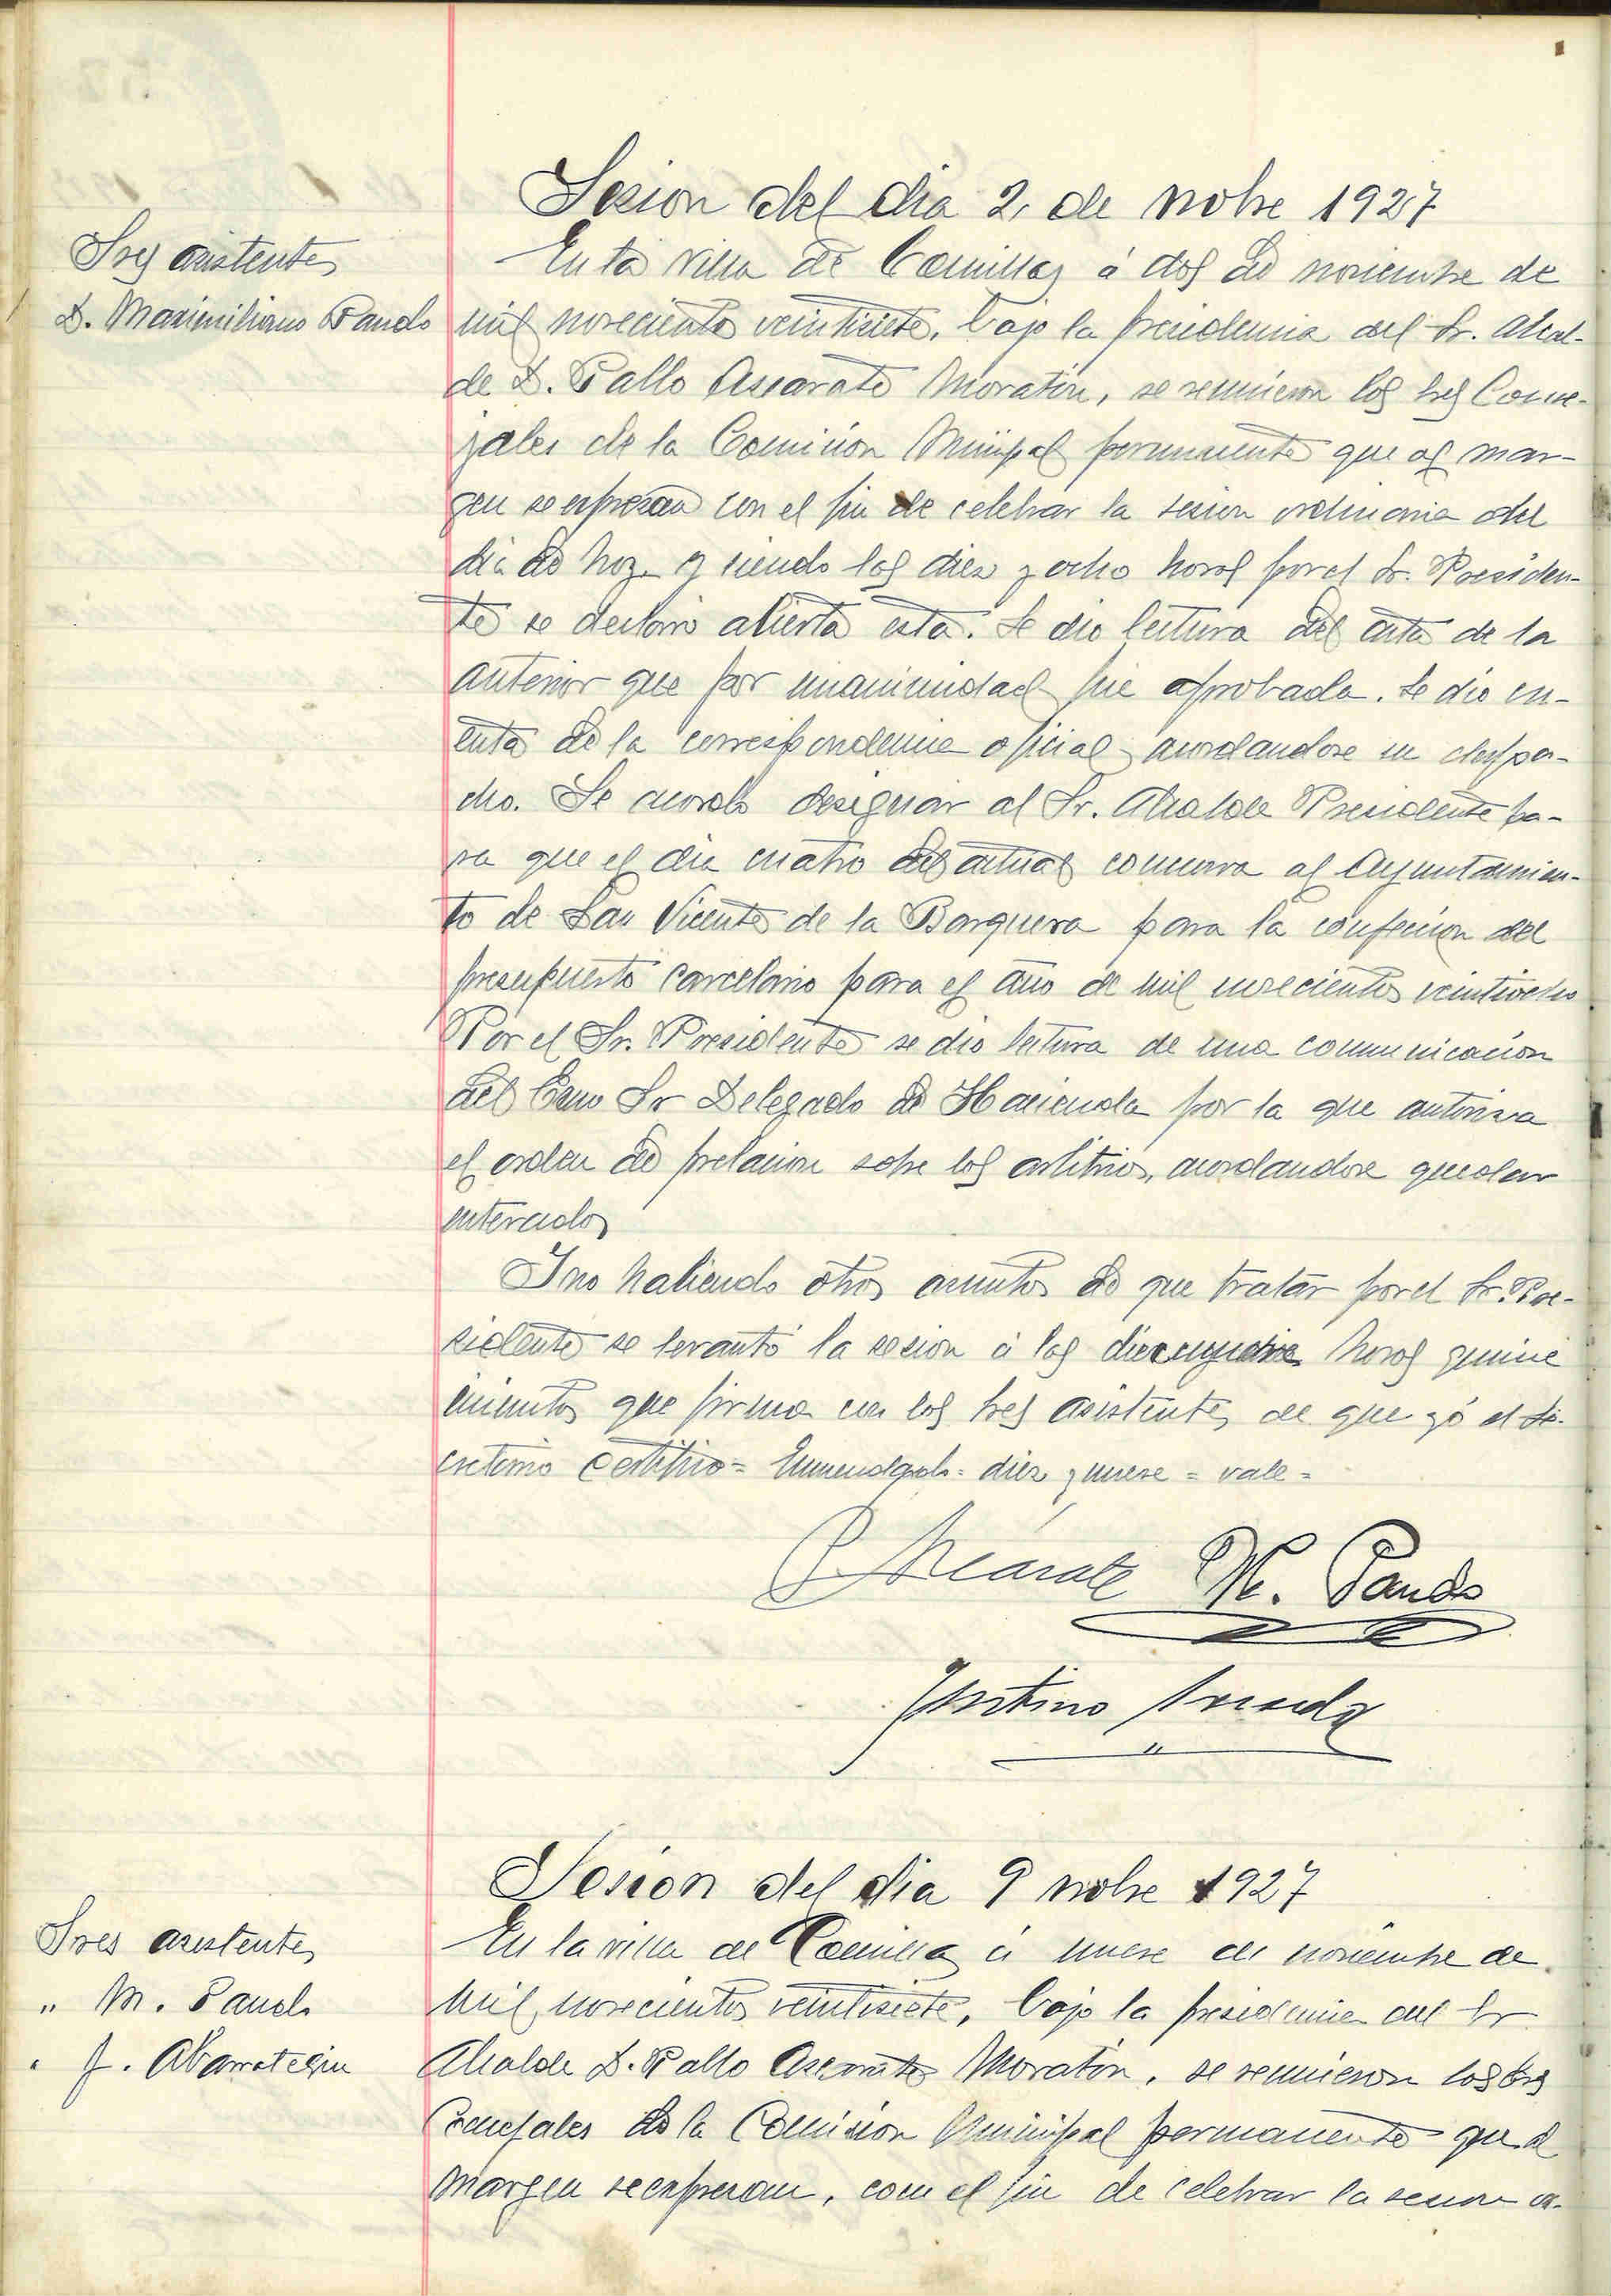 Sesion del dia 2, de nobre 1927
Sres asistentes
D. Maximiliano Pando
En la villa de Comillas á dos de noviembre de
mil novecientos veintisiete, bajo la presidencia del Sr. Alcal-
de D. Pablo Ascarate Moratin, se reunieron los Sres Conce-
jales de la Comision Municipal permanente que al mar-
gen se expresan con el fin de celebrar la sesion ordinaria del
dia de hoy y siendo las diez y ocho horas por el Sr. Presiden-
te se declaró abierta esta. Se dio lectura del acta de la
anterior que por unanimidad fue aprobada. Se dió cu-
enta de la correspondencia oficial acordandose su despa-
cho. Se acordo designar al Sr. Alcalde Presidente pa-
ra que el dia cuatro del actual concurra al Ayuntamien-
to de San Vicente de la Barquera para la confeccion del
presupuesto carcelario para el año de mil novecientos veintiocho
Por el Sr. Presidente se dio lectura de una comunicacion
del Excmo Sr Delegado de Hacienda por la que autoriza
el orden de prelacion sobre los arbitrios, acordandose quedar
enterados
Y no habiendo otros asuntos de que tratar por el Sr. Pre-
sidente se levantó la sesion á las diez y nueve horas quince
minutos que firma con los Sres asistentes, de que yó el Se-
cretario certifico = Enmendado = diez y nueve = vale =
P. Ascarate M. Pando
Justino
Sesion del dia 9 nobre 1927
Sres asistentes
" M. Pando
" J. Abarrategui
En la villa de Comillas á nueve de noviembre de
mil novecientos veintisiete, bajo la presidencia del Sr
Alcalde D. Pablo Ascarate Moratin, se reunieron los Sres
Concejales de la Comision Municipal permanente que al
margen se expresan, con el fin de celebrar la sesion or-